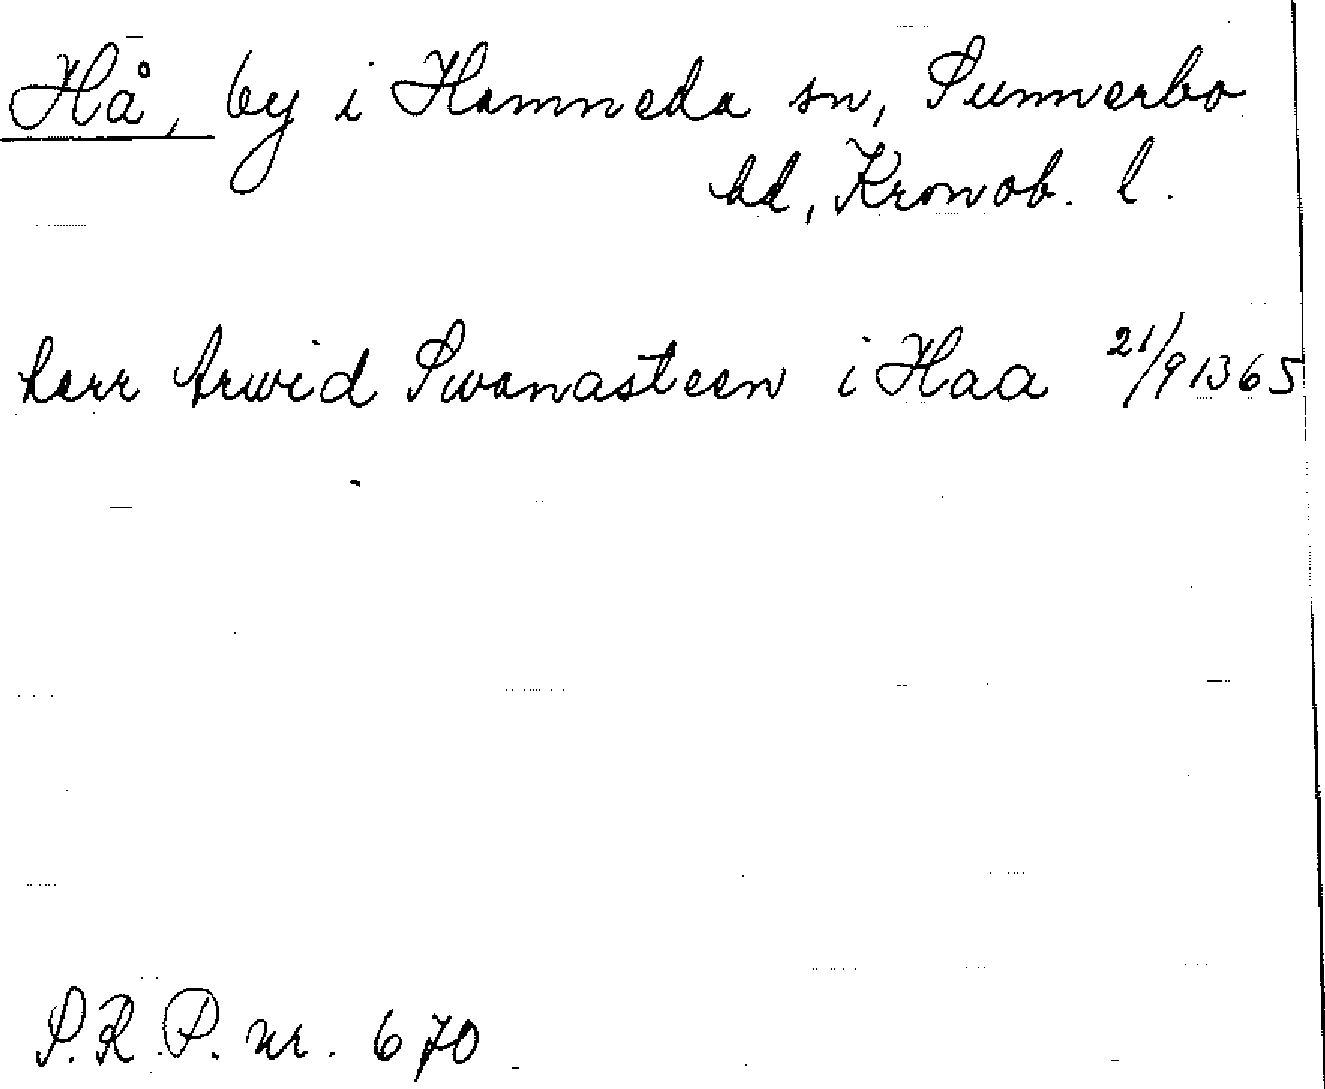 Hå, by i Hamneda sn, Sunnerbo
hd, Kronob. l.
herr Arwid Swanasteen i Haa 21/9 1365
S.R.P. nr. 670